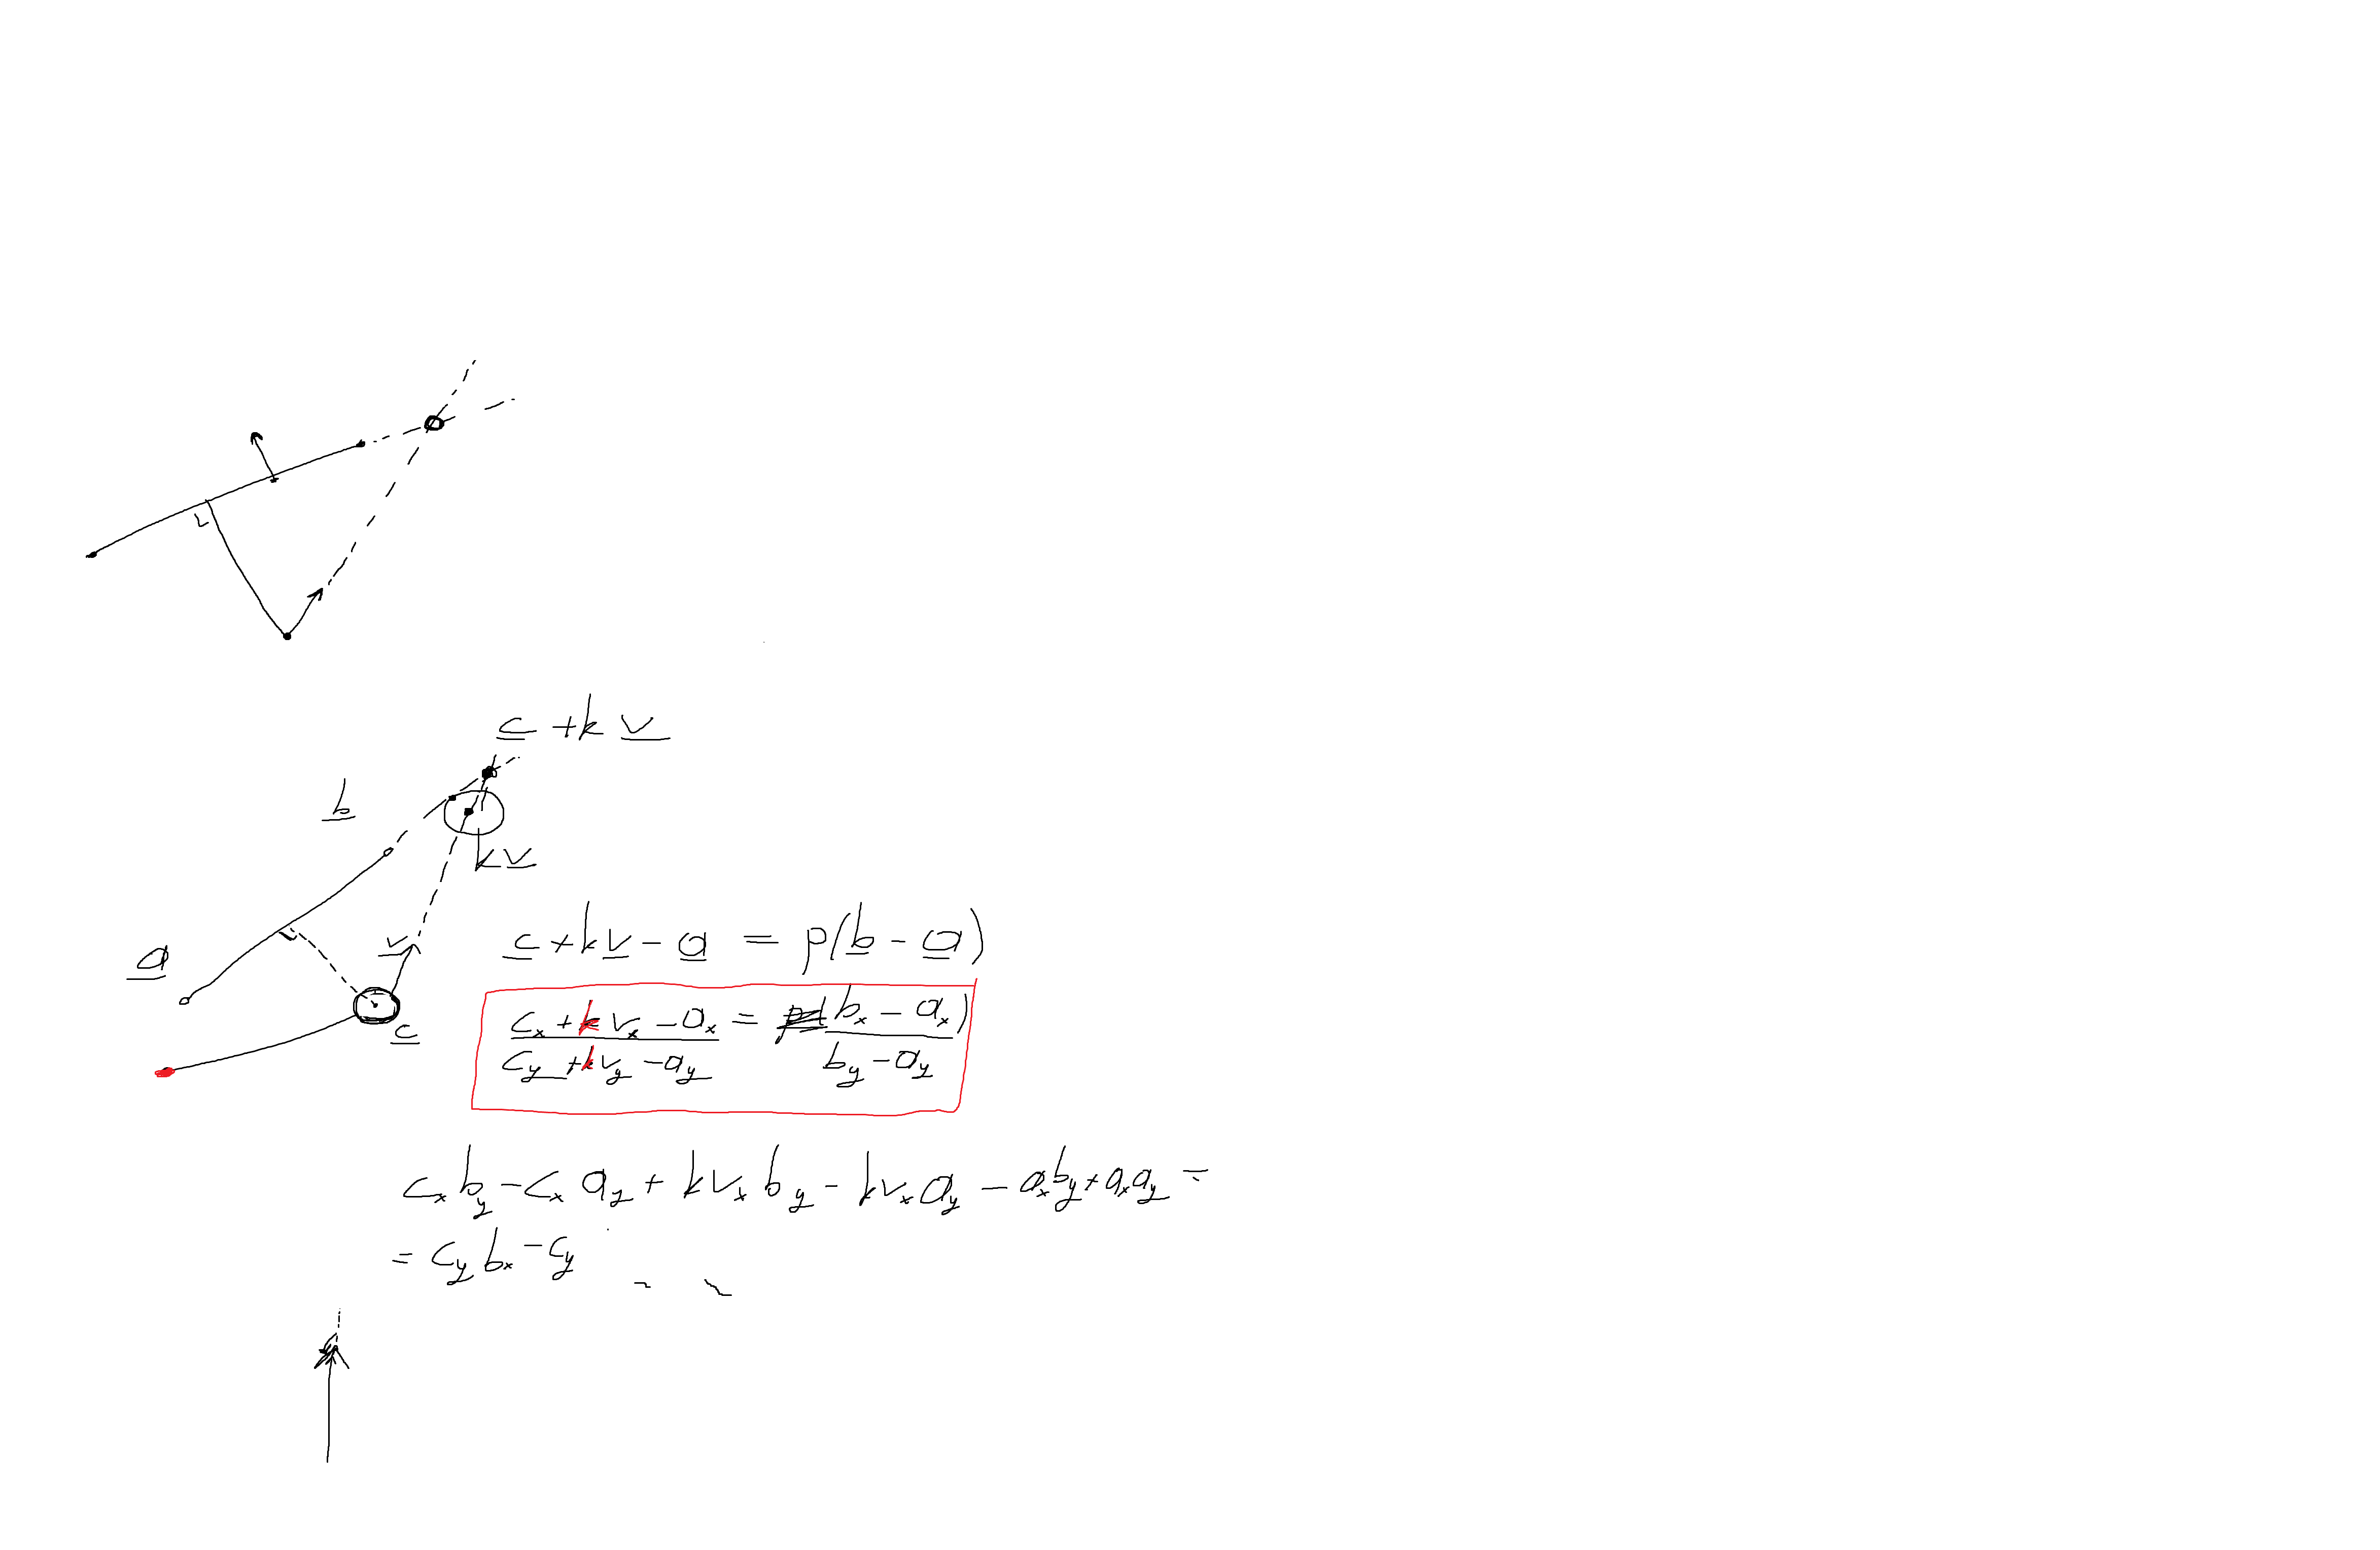 c + k v
b
k v
a
v
c + k v - a = p(b - a)
c
c_x + k v_x - a_x = b_x - a_x)
c_y + k v_y - a_y b_y - a_y
c_x b_y - c_x a_y + k v_x b_y - k v_x a_y - a_x b_y + a_x a_y =
= c_y b_x - c_y